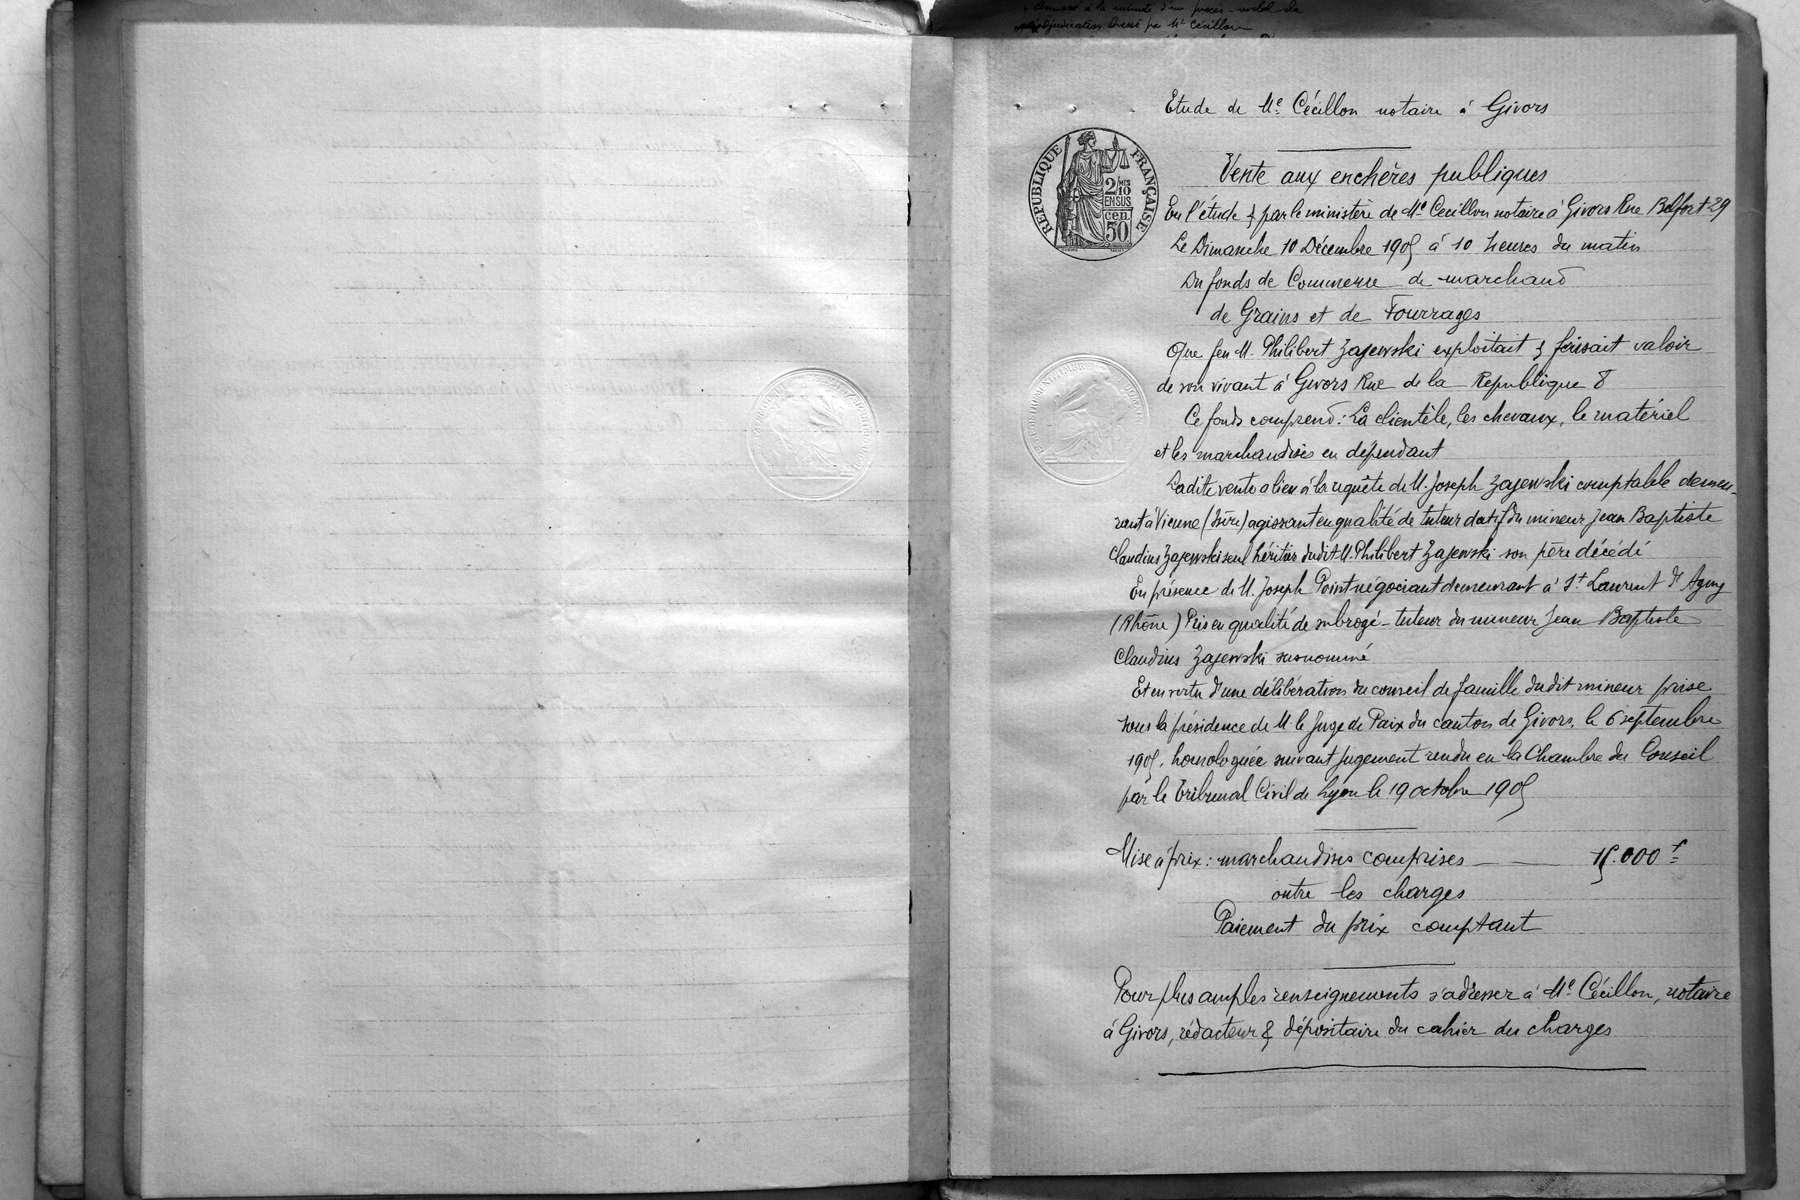 annexé à la minute d'un procès verbal de
adjudication dressé par Mᵉ Cécillon
Etude de Mᵉ Cécillon notaire à Givors
REPUBLIQUE FRANÇAISE
2/10 EN SUS
50 cen
Vente aux enchères publiques
En l'étude & par le ministère de Mᵉ Cecillon notaire à Givors Rue Belfort 29
Le Dimanche 10 Décembre 1905 à 10 heures du matin
Du fonds de Commerce de marchand
de Grains et de Fourrages
Que feu M. Philibert Zajewski exploitait & faisait valoir
de son vivant à Givors Rue de la République 8
Ce fonds comprend : La clientèle, les chevaux, le matériel
et les marchandises en dépendant
Ladite vente a lieu à la requête de M. Joseph Zajewski comptable demeu-
rant à Vienne (Isère) agissant en qualité de tuteur datif du mineur Jean Baptiste
Claudius Zajewski seul héritier dudit M. Philibert Zajewski son père décédé
En présence de M. Joseph Point négociant demeurant à Sᵗ Laurent d'Agny
(Rhône) Pris en qualité de subrogé-tuteur du mineur Jean Baptiste
Claudius Zajewski susnommé
Et en vertu d'une délibération du conseil de famille dudit mineur prise
sous la présidence de M. le Juge de Paix du canton de Givors, le 6 septembre
1905, homologuée suivant jugement rendu en la Chambre du Conseil
par le Tribunal Civil de Lyon le 19 octobre 1905
Mise à prix : marchandises comprises — — 15.000 ᶠ
outre les charges
Paiement du prix comptant
Pour plus amples renseignements s'adresser à Mᵉ Cécillon, notaire
à Givors, rédacteur & dépositaire du cahier des charges